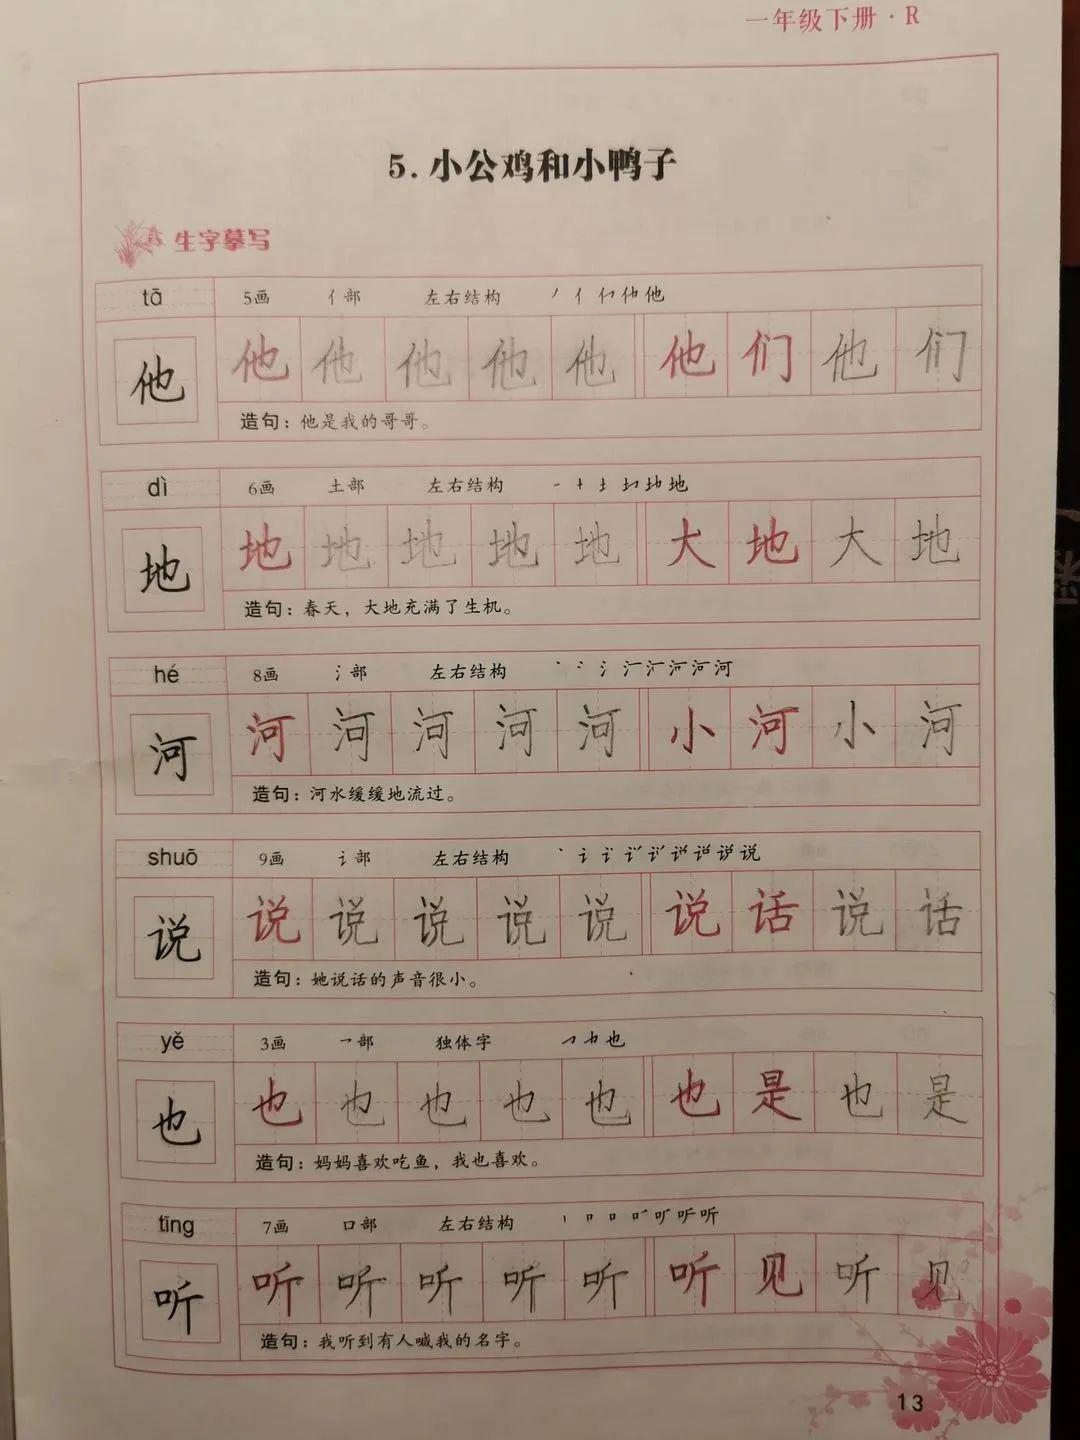 一年级下册·R
5.小公鸡和小鸭子
生字摹写
tā 5画 亻部 左右结构
他 他 他 他 他 他 他 们 他 们
造句：他是我的哥哥。
dì 6画 土部 左右结构
地 地 地 地 地 地 大 地 大 地
造句：春天，大地充满了生机。
hé 8画 氵部 左右结构
河 河 河 河 河 河 小 河 小 河
造句：河水缓缓地流过。
shuō 9画 讠部 左右结构
说 说 说 说 说 说 说 话 说 话
造句：她说话的声音很小。
yě 3画 乛部 独体字
也 也 也 也 也 也 也 是 也 是
造句：妈妈喜欢吃鱼，我也喜欢。
tīng 7画 口部 左右结构
听 听 听 听 听 听 听 见 听 见
造句：我听到有人喊我的名字。
13